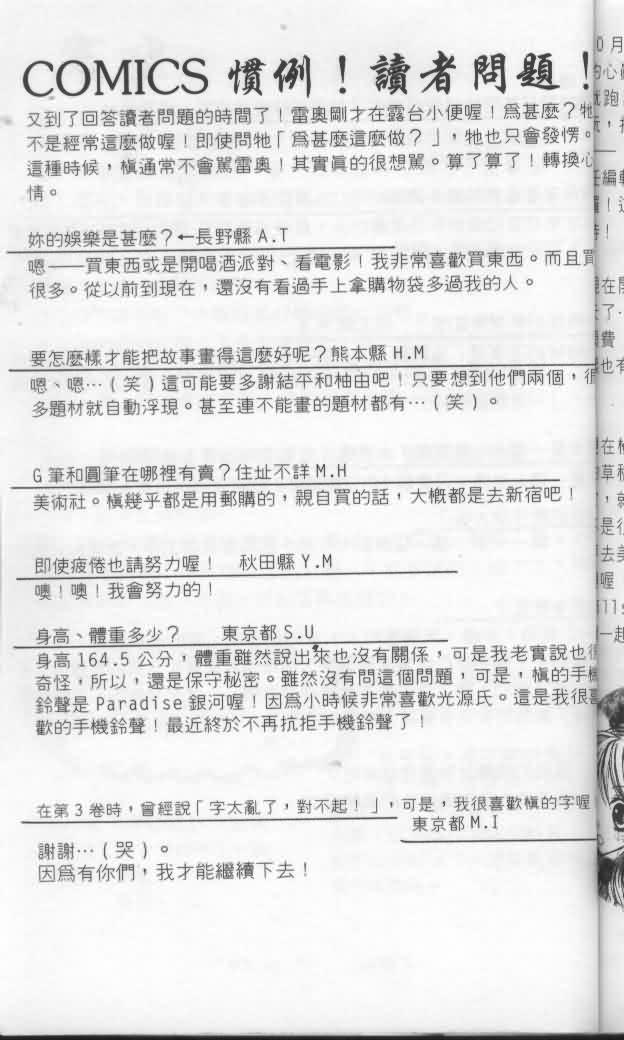 COMICS 慣例！讀者問題！
又到了回答讀者問題的時間了！雷奧剛才在露台小便喔！爲甚麼？牠
不是經常這麼做喔！即使問牠「爲甚麼這麼做？」，牠也只會發愣。
這種時候，槇通常不會罵雷奧！其實真的很想罵。算了算了！轉換心
情。
妳的娛樂是甚麼？←長野縣 A.T
嗯——買東西或是開喝酒派對、看電影！我非常喜歡買東西。而且買
很多。從以前到現在，還沒有看過手上拿購物袋多過我的人。
要怎麼樣才能把故事畫得這麼好呢？熊本縣 H.M
嗯、嗯…（笑）這可能要多謝結不和柚由吧！只要想到他們兩個，很
多題材就自動浮現。甚至連不能畫的題材都有…（笑）。
G 筆和圓筆在哪裡有賣？住址不詳 M.H
美術社。槇幾乎都是用郵購的，親自買的話，大概都是去新宿吧！
即使疲倦也請努力喔！ 秋田縣 Y.M
噢！噢！我會努力的！
身高、體重多少？ 東京都 S.U
身高 164.5 公分，體重雖然說出來也沒有關係，可是我老實說也很
奇怪，所以，還是保守秘密。雖然沒有問這個問題，可是，槇的手機
鈴聲是 Paradise 銀河喔！因爲小時候非常喜歡光源氏。這是我很喜
歡的手機鈴聲！最近終於不再抗拒手機鈴聲了！
在第 3 卷時，曾經說「字太亂了，對不起！」，可是，我很喜歡槇的字喔
東京都 M.I
謝謝…（哭）。
因爲有你們，我才能繼續下去！